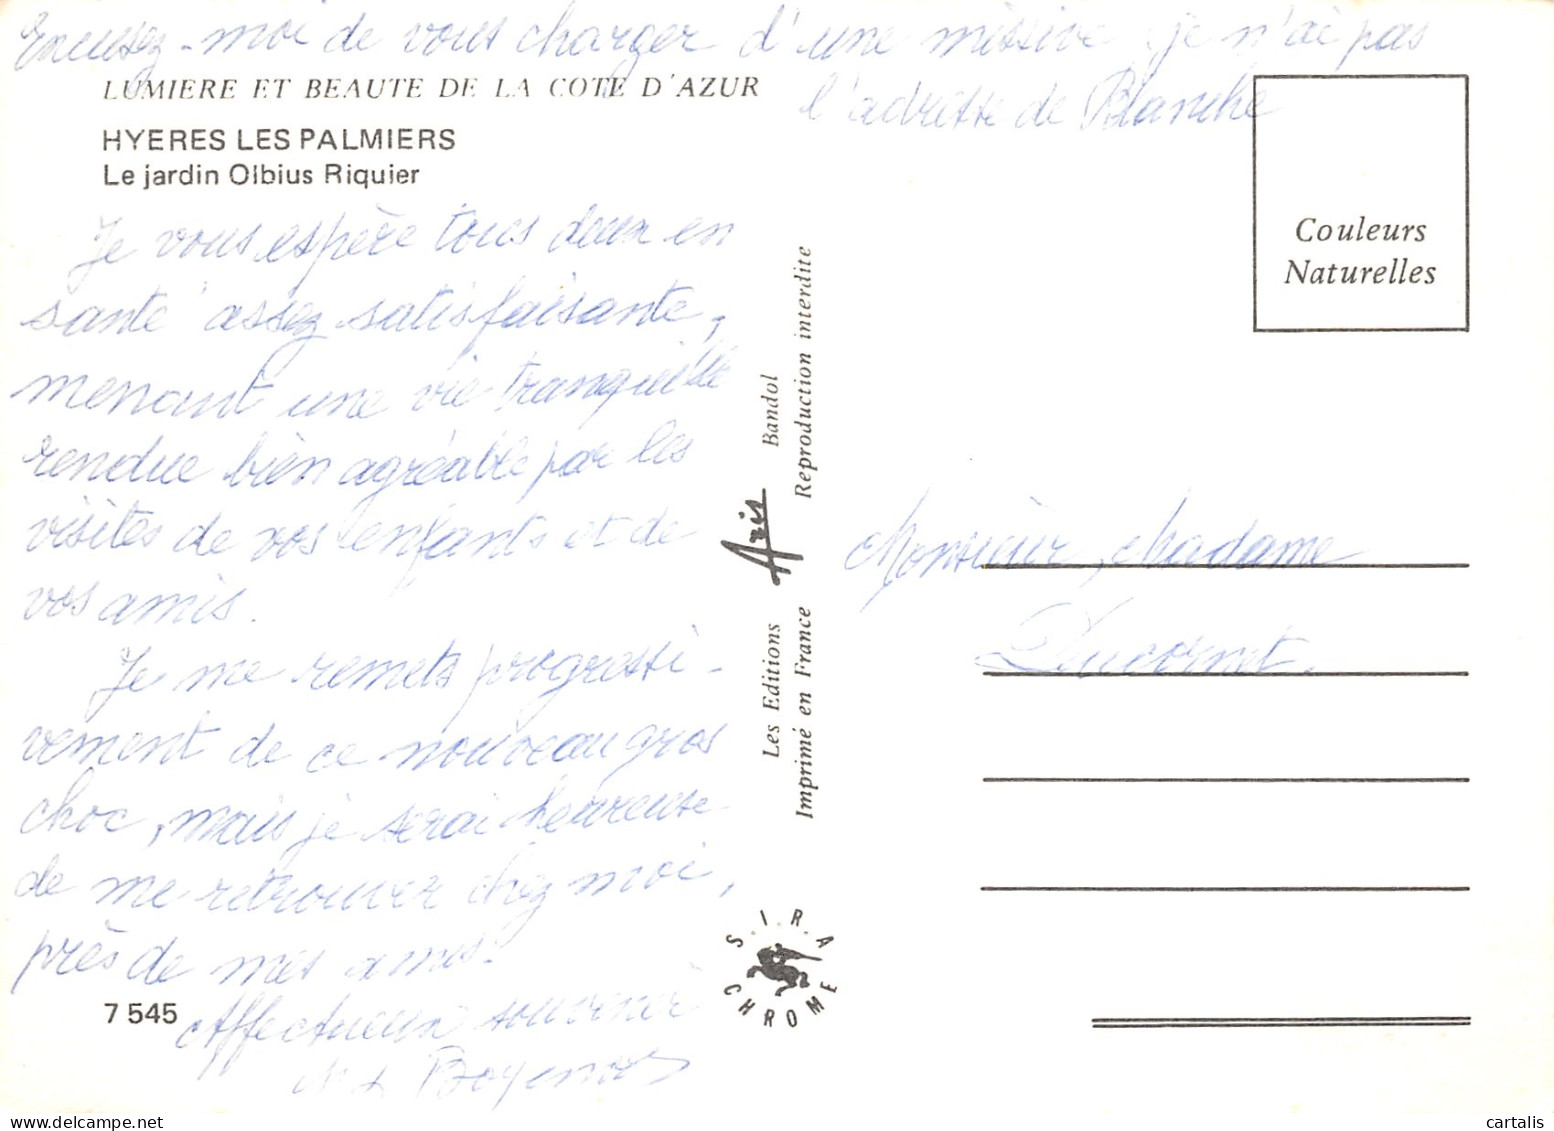 Excusez-moi de vous charger d'une missive je n'ai pas
l'adresse de Blanche
LUMIERE ET BEAUTE DE LA COTE D'AZUR
HYERES LES PALMIERS
Le jardin Olbius Riquier
Je vous espère tous deux en
santé assez satisfaisante,
menant une vie tranquille
rendue bien agréable par les
visites de vos enfants et de
vos amis.
Je me remets progressi-
vement de ce nouveau gros
choc, mais je serai heureuse
de me retrouver chez moi,
près de mes amis.
Affectueux souvenir
7 545
Les Editions Aris Bandol
Imprimé en France Reproduction interdite
S.I.R.A
CHROME
Couleurs
Naturelles
Monsieur, Madame
Ducornet.
cartalis